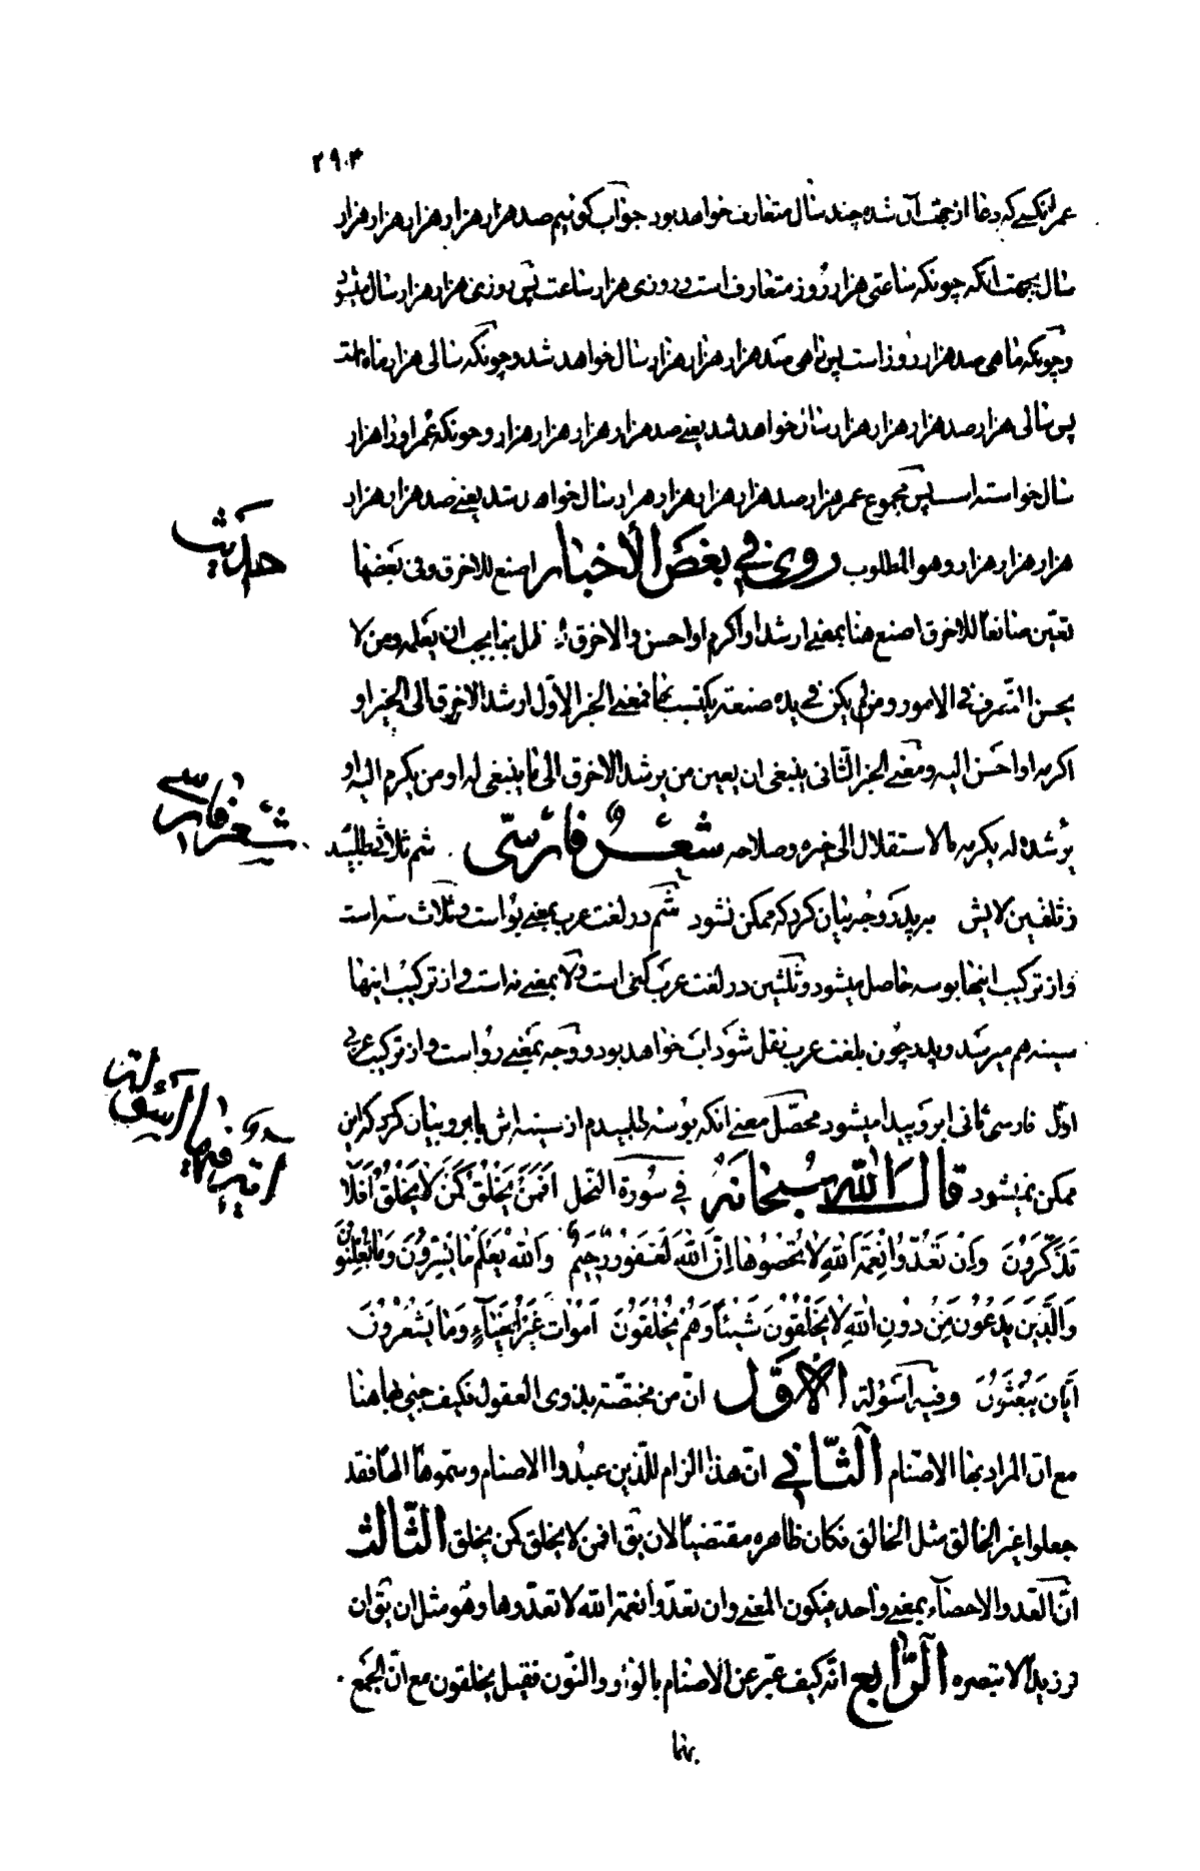 ٢٩٠٣
عمر انکسی که دعا از جهت آن شده چند سال متعارف خواهد بود جواب کوئیم صد هزار هزار هزار هزار هزار
سال بجهت انکه چونکه ساعتی هزار روز متعارف است و روزی هزار ساعت پس روزی هزار هزار سال میشود
و چونکه ماهی صد هزار روز است پس ماهی صد هزار هزار هزار سال خواهد شد و چونکه سالی هزار ماه است
پس سالی هزار صد هزار هزار هزار سال خواهد شد یعنی صد هزار هزار هزار هزار و چونکه عمر او را هزار
سال خواسته است پس مجموع عمر هزار صد هزار هزار هزار هزار سال خواهد شد یعنی صد هزار هزار
هزار هزار هزار و هو المطلوب روی فی بعض الأخبار اصنع للاخرق و فی بعضها
حدیث
تعین صانعا للاخرق اصنع هنا بمعنی ارشد او اکرم او احسن و الاخرق بما یجب ان یعلمه و من لا
یحسن التصرف فی الامور و من لم یکن فی یده صنعة یکتسب بها فمعنی الخبر الاول ارشد الاخرق الی الخیر او
اکرمه او احسن الیه و معنی الخبر الثانی ینبغی ان یعین من یرشد الاخرق الی ما ینبغی له او من یکرم الیه او
شعر فارسی
یرشده له یکرمه بالاستقلال الی خیره و صلاحه شعر فارسی ثم ثلاثی طلبید
ز ثلثین لایش بدو وجه بیان کرد که ممکن نشود ثم در لغت عرب بمعنی بو است و ثلاث سه است
و از ترکیب اینها بوسه حاصل میشود و ثلثین در لغت عرب سی است و لا بمعنی نه است و از ترکیب اینها
سینه هم میرسد و پدر چون بلغت عرب نقل شود اب خواهد بود و وجه بمعنی رو است و از ترکیب عربی
اول فارسی ثانی ابرو پیدا میشود محصل معنی انکه بوسه طلبیدم از سینه اش با ابرو بیان کرد که این
آیة و فیها اسؤلة
ممکن نمیشود قال الله سبحانه فی سورة النحل أَفَمَنْ يَخْلُقُ كَمَنْ لَا يَخْلُقُ أَفَلَا
تَذَكَّرُونَ وَإِنْ تَعُدُّوا نِعْمَةَ اللَّهِ لَا تُحْصُوهَا إِنَّ اللَّهَ لَغَفُورٌ رَحِيمٌ وَاللَّهُ يَعْلَمُ مَا تُسِرُّونَ وَمَا تُعْلِنُونَ
وَالَّذِينَ يَدْعُونَ مِنْ دُونِ اللَّهِ لَا يَخْلُقُونَ شَيْئًا وَهُمْ يُخْلَقُونَ أَمْوَاتٌ غَيْرُ أَحْيَاءٍ وَمَا يَشْعُرُونَ
أَيَّانَ يُبْعَثُونَ وفیه اسؤلة الاوّل انّ من مختصّة بذوی العقول فکیف جیئ بها هنا
مع انّ المراد بها الاصنام الثّانی انّ هذا الزام للّذین عبدوا الاصنام و سمّوها الها فقد
جعلوا غیر الخالق مثل الخالق فکان ظاهره مقتضیا لان یق افمن لا یخلق کمن یخلق الثّالث
انّ العد و الاحصاء بمعنی واحد فیکون المعنی و ان تعدّوا نعمة الله لا تعدّوها و هو مثل ان یق ان
تر زیدا لا تبصره الرّابع انّه کیف عبّر عن الاصنام بالواو و النّون فقیل یخلقون مع انّ الجمع
بهما